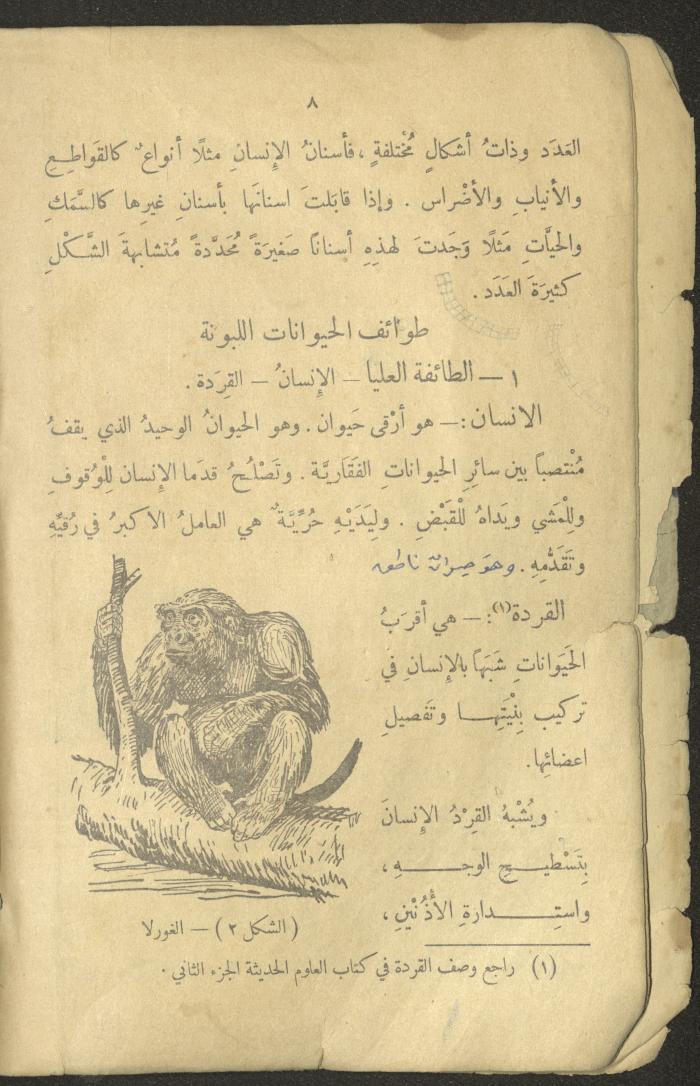 ٨
العَدَد وذاتُ أشكالٍ مُخْتلفةٍ ، فأسنانُ الإِنسانِ مثلًا أنواعٌ كالقَواطِعِ
والأنيابِ والأضْراس . وإذا قابَلتَ اسنانَها بأسنانِ غيرِها كالسَّمَكِ
والحيَّاتِ مَثلًا وَجَدتَ لهذِهِ أسنانًا صَغيرَةً مُحَدَّدةً مُتشابهةَ الشَّكْلِ
كثيرَةَ العَدَد .
طوائف الحيوانات اللبونة
١ — الطائفة العليا — الإِنسانُ — القِرَدة .
الانسان :— هو أرْقى حَيوان . وهو الحيوانُ الوحيدُ الذي يقفُ
مُنْتصباً بين سائرِ الحيواناتِ الفَقَاريَّة . وتَصْلُحُ قدَما الإِنسان لِلْوُقوفِ
وللْمَشي ويَداهُ للْقَبْضِ . ولِيَدَيْهِ حُرِّيَّةٌ هي العاملُ الاكبرُ في رُقيِّهِ
وتَقَدُّمِهِ . وهو
القردة (١) :— هي أقرَبُ
الحَيَواناتِ شَبَهاً بالإِنسانِ في
تركيب بِنْيَتِهـا وتَفصيلِ
اعضائِها .
ويُشْبهُ القِرْدُ الإنسانَ
بِتَسْطيـحِ الوجـهِ ،
واستِـدارةِ الأُذُنْينِ ،
( الشكل ٢ ) — الغورلا
(١) راجع وصف القردة في كتاب العلوم الحديثة الجزء الثاني .